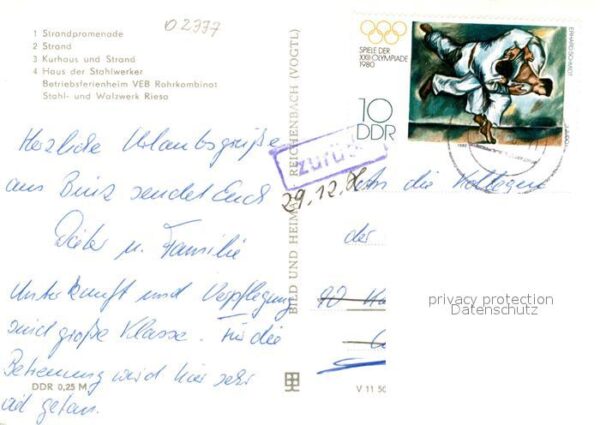 D 2777
1 Strandpromenade
2 Strand
3 Kurhaus und Strand
4 Haus der Stahlwerker
Betriebsferienheim VEB Rohrkombinat
Stahl- und Walzwerk Riesa
Herzliche Urlaubsgrüße
aus Binz sendet Euch
Dieter u. Familie
Unterkunft und Verpflegung
sind große Klasse. Für die
Betreuung wird hier sehr
viel getan.
DDR 0,25 M
BILD UND HEIMAT REICHENBACH (VOGTL)
V 11 50
SPIELE DER
XXII. OLYMPIADE
1980
10
DDR
ERHARD SCHMIDT
zurück
29.12.
An die Kollegen
der
privacy protection
Datenschutz